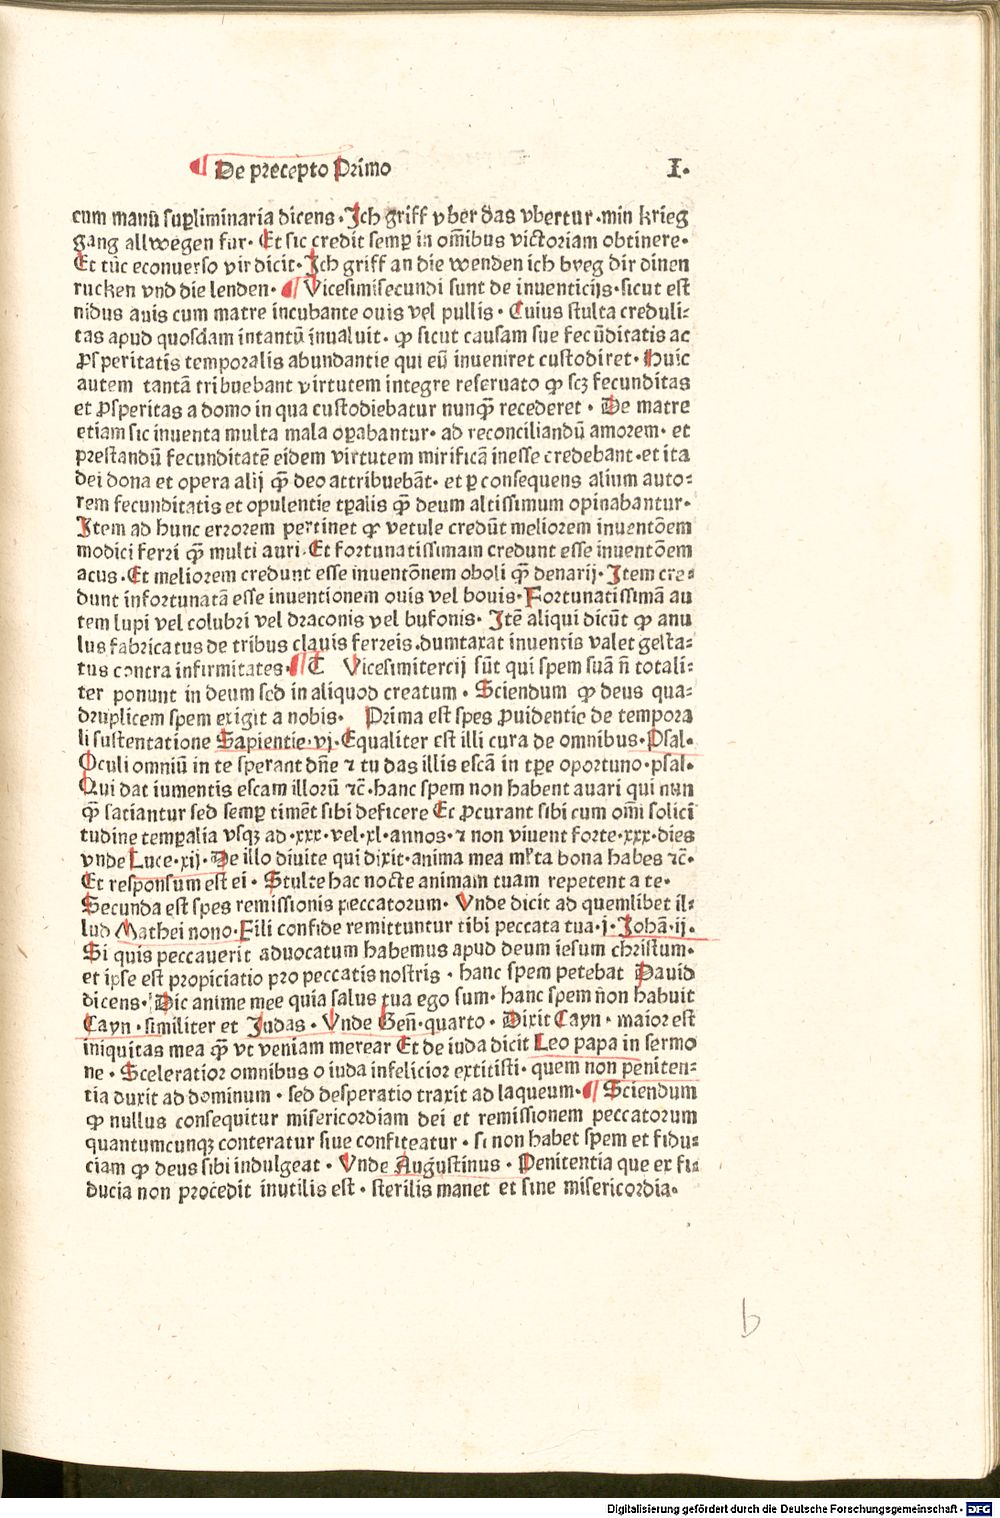 De precepto Primo I.
cum manū suꝑliminaria dicens · Ich griff vber das vbertur · min krieg
gang allwegen fur · Et sic credit semꝑ in om̄ibus victoriam obtinere ·
Et tūc econuerso vir dicit · Ich griff an die wenden ich bveg dir dinen
rucken vnd die lenden · ¶ Vicesimisecundi sunt de inuenticijs · sicut est
nidus auis cum matre incubante ouis vel pullis · Cuius stulta creduli⸗
tas apud quosdam intantū inualuit · ꝙ sicut causam sue fecūditatis ac
ꝓsperitatis temporalis abundantie qui eū inueniret custodiret · Huic
autem tantā tribuebant virtutem integre reseruato ꝙ scꝫ fecunditas
et ꝓsperitas a domo in qua custodiebatur nunq̄ recederet · De matre
etiam sic inuenta multa mala oꝑabantur · ad reconciliandū amorem · et
prestandū fecunditatē eidem virtutem mirificā inesse credebant · et ita
dei dona et opera alij q̄ deo attribuebāt · et ꝑ consequens alium auto⸗
rem fecunditatis et opulentie tꝑalis q̄ deum altissimum opinabantur ·
Item ad hunc errorem pertinet ꝙ vetule credūt meliorem inuentōem
modici ferri q̄ multi auri · Et fortunatissimam credunt esse inuentōem
acus · Et meliorem credunt esse inuentōnem oboli q̄ denarij · Item cre⸗
dunt infortunatā esse inuentionem ouis vel bouis · Fortunatissimā au
tem lupi vel colubri vel draconis vel bufonis · Itē aliqui dicūt ꝙ anu
lus fabricatus de tribus clauis ferreis · dumtaxat inuentis valet gesta⸗
tus contra infirmitates · ¶ C Vicesimitercij sūt qui spem suā n̄ totali⸗
ter ponunt in deum sed in aliquod creatum · Sciendum ꝙ deus qua⸗
druplicem spem exigit a nobis · Prima est spes ꝓuidentie de tempora
li sustentatione Sapientie · vj · Equaliter est illi cura de omnibus · Psal ·
Oculi omniū in te sperant dn̄e ⁊ tu das illis escā in tꝑe oportuno · psal ·
Qui dat iumentis escam illorū ⁊c̄ · hanc spem non habent auari qui nun
q̄ satiantur sed semꝑ timēt sibi deficere Et ꝓcurant sibi cum om̄i solici
tudine temꝑalia vsqꝫ ad · xxx · vel · xl · annos · ⁊ non viuent forte · xxx · dies
vnde Luce · xij · De illo diuite qui dixit · anima mea ml̄ta bona habes ⁊c̄ ·
Et responsum est ei · Stulte hac nocte animam tuam repetent a te ·
Secunda est spes remissionis peccatorum · Vnde dicit ad quemlibet il⸗
lud Mathei nono · Fili confide remittuntur tibi peccata tua · j · Johā · ij ·
Si quis peccauerit aduocatum habemus apud deum iesum christum ·
et ipse est propiciatio pro peccatis nostris · hanc spem petebat Dauid
dicens · Dic anime mee quia salus tua ego sum · hanc spem non habuit
Cayn · similiter et Judas · Vnde Gen̄ · quarto · Dixit Cayn · maior est
iniquitas mea q̄ vt veniam merear Et de iuda dicit Leo papa in sermo
ne · Sceleratior omnibus o iuda infelicior extitisti · quem non peniten⸗
tia duxit ad dominum · sed desperatio traxit ad laqueum · ¶ Sciendum
ꝙ nullus consequitur misericordiam dei et remissionem peccatorum
quantumcunqꝫ conteratur siue confiteatur · si non habet spem et fidu⸗
ciam ꝙ deus sibi indulgeat · Vnde Augustinus · Penitentia que ex fi⸗
ducia non procedit inutilis est · sterilis manet et sine misericordia ·
b
Digitalisierung gefördert durch die Deutsche Forschungsgemeinschaft - DFG